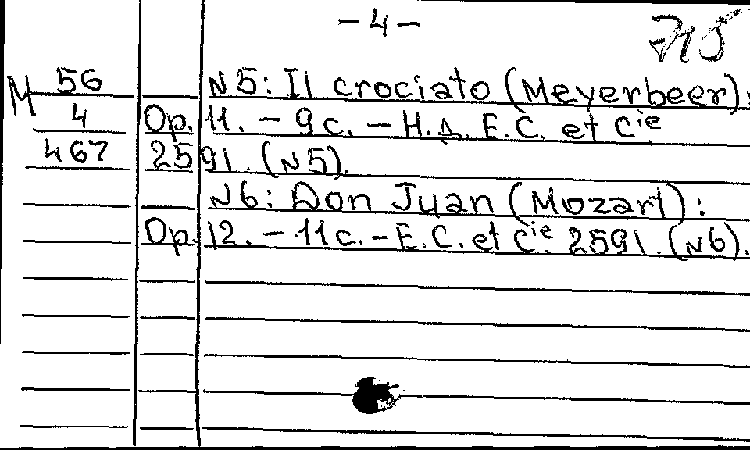 -4-
M 56 N5: Il crociato (Meyerbeer):
4 Op. 11. - 9c. - H.A. E.C. et Cie
467 2591 (N5).
N6: Don Juan (Mozart):
Op. 12. - 11c. - E.C. et Cie 2591 (N6).